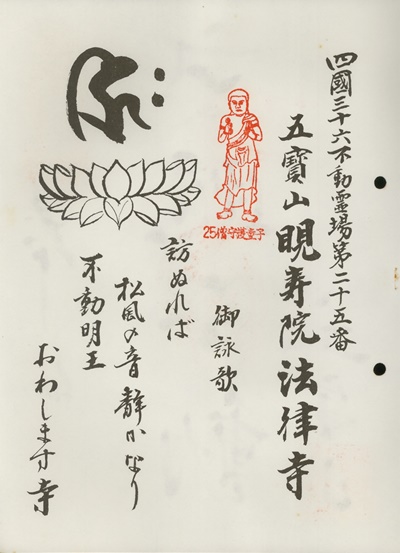 四國三十六不動霊場第二十五番
五寳山睍壽院法律寺
25僧守護童子
御詠歌
訪ぬれば
松風の音静かなり
不動明王
おわします寺